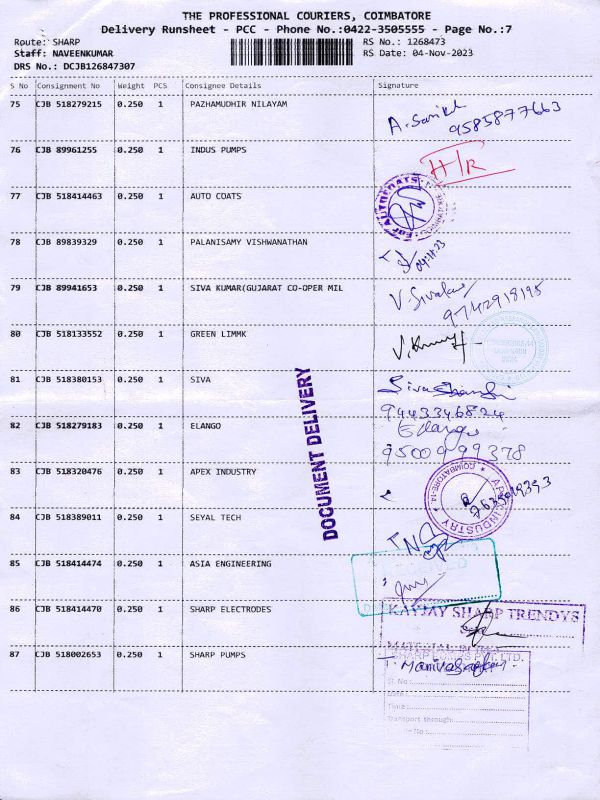 THE PROFESSIONAL COURIERS, COIMBATORE
Delivery Runsheet - PCC - Phone No.:0422-3505555 - Page No.:7
Route: SHARP RS No.: 1268473
Staff: NAVEENKUMAR RS Date: 04-Nov-2023
DRS No.: DCJB126847307
S No Consignment No Weight PCS Consignee Details Signature
75 CJB 518279215 0.250 1 PAZHAMUDHIR NILAYAM
9585877663
76 CJB 89961255 0.250 1 INDUS PUMPS
H/R
77 CJB 518414463 0.250 1 AUTO COATS
78 CJB 89839329 0.250 1 PALANISAMY VISHWANATHAN
79 CJB 89941653 0.250 1 SIVA KUMAR(GUJARAT CO-OPER MIL
9742918195
80 CJB 518133552 0.250 1 GREEN LIMMK
81 CJB 518380153 0.250 1 SIVA
9443346824
82 CJB 518279183 0.250 1 ELANGO
Elango
9500999378
DOCUMENT DELIVERY
83 CJB 518320476 0.250 1 APEX INDUSTRY
APEX INDUSTRY
COIMBATORE
84 CJB 518389011 0.250 1 SEYAL TECH
85 CJB 518414474 0.250 1 ASIA ENGINEERING
86 CJB 518414470 0.250 1 SHARP ELECTRODES
KAYJAY SHARP TRENDYS
87 CJB 518002653 0.250 1 SHARP PUMPS
Sl. No.:
Date:
Time:
Transport through:
No: